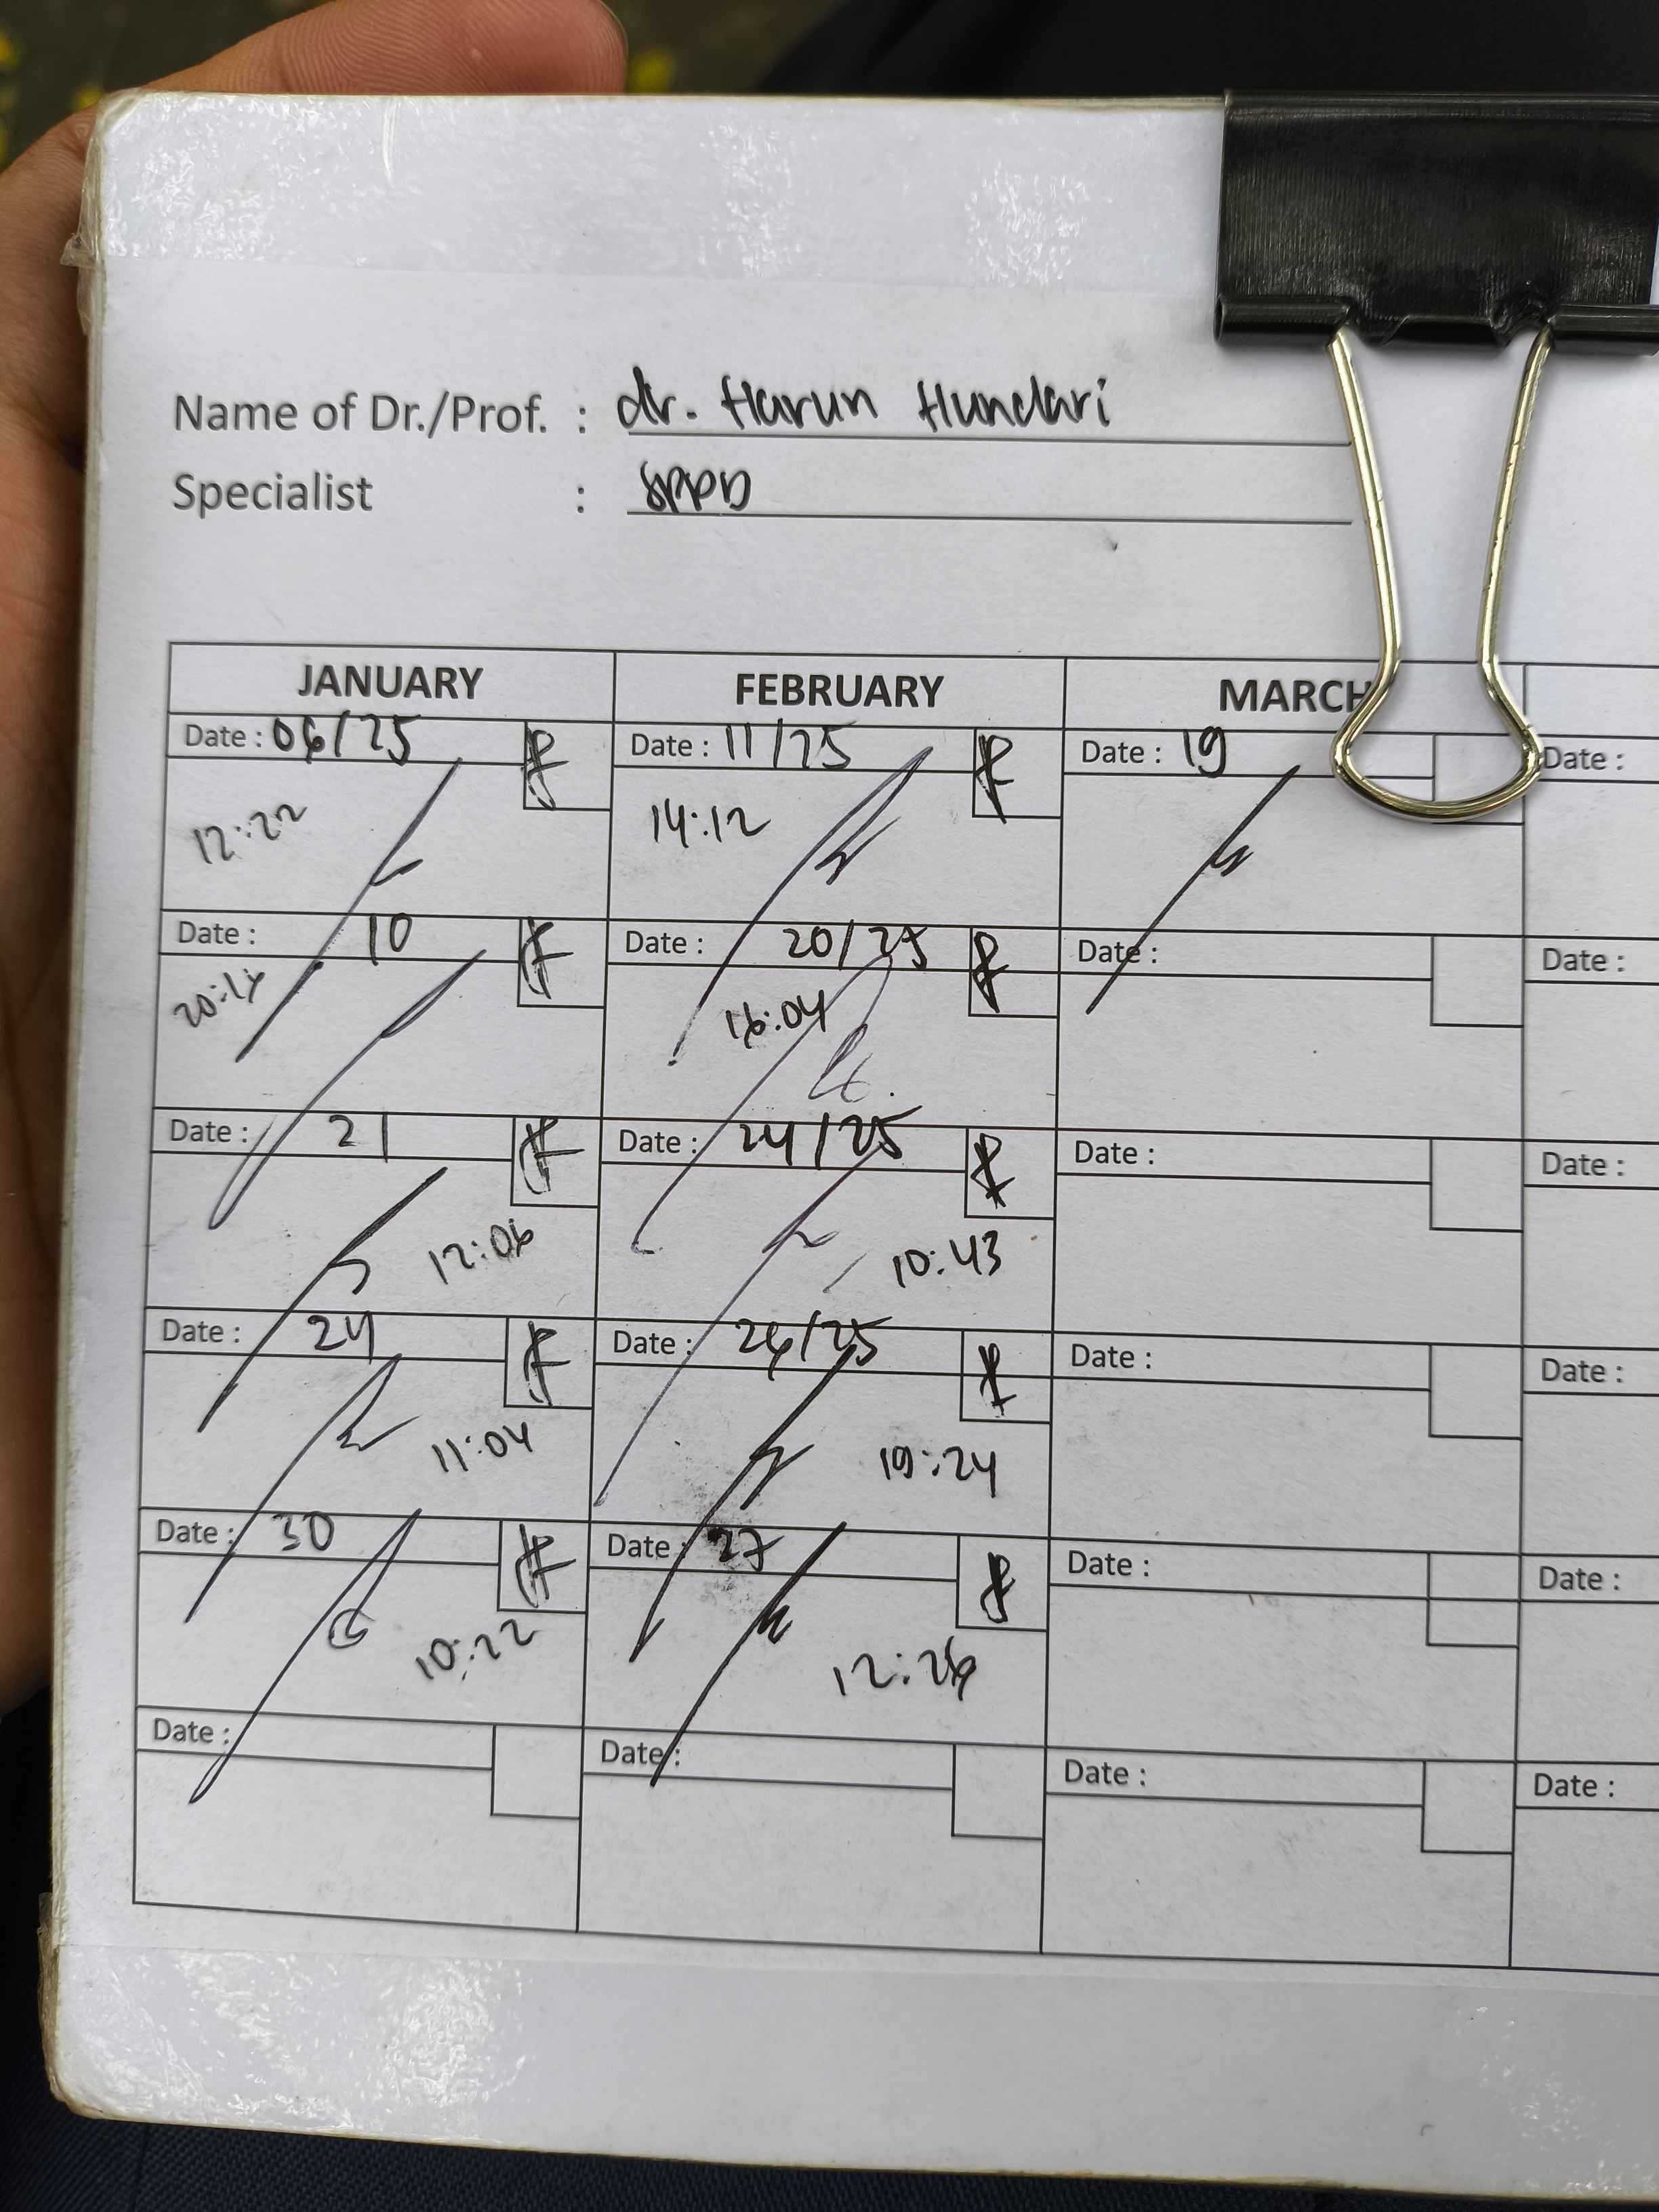 Name of Dr./Prof. : dr. Harun Hundari
Specialist : SPPD
JANUARY FEBRUARY MARCH
Date : 06/25 Date : 11/25 Date : 19 Date :
12:22 14:12
Date : 10 Date : 20/25 Date : Date :
16:04
Date : 21 Date : 24/25 Date : Date :
12:06 10:43
Date : 24 Date : 26/25 Date : Date :
11:04 19:24
Date : 30 Date : 27 Date : Date :
10:22 12:26
Date : Date : Date : Date :